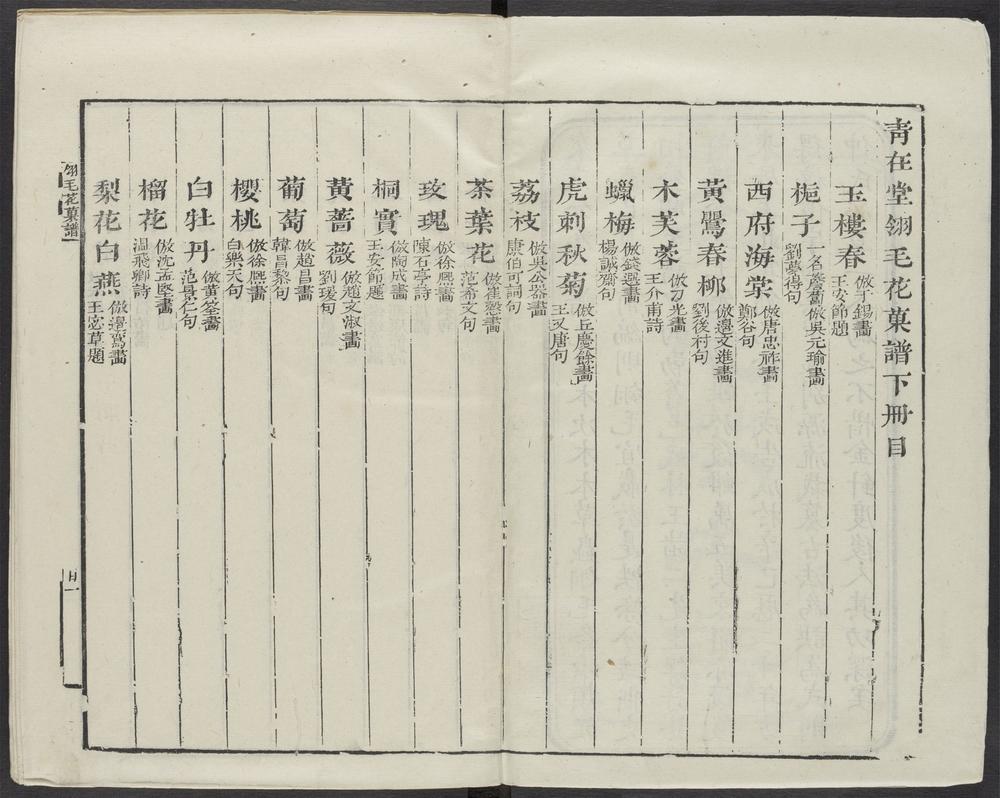 青在堂翎毛花菓譜下冊目
玉樓春 倣于錫畫 王安節題
梔子 一名薝蔔倣吳元瑜畫 劉夢得句
西府海棠 倣唐忠祚畫 鄭谷句
黃鸎春栁 倣邊文進畫 劉後村句
木芙蓉 倣刁光畫 王介甫詩
蠟梅 倣錢選畫 楊誠齋句
虎刺秋菊 倣丘慶餘畫 王又唐句
荔枝 倣吳公器畫 唐伯可詞句
茶葉花 倣崔愨畫 范希文句
玫瑰 倣徐熈畫 陳石亭詩
桐實 倣陶成畫 王安節題
黃薔薇 倣趙文淑畫 劉瑗句
葡萄 倣趙昌畫 韓昌黎句
櫻桃 倣徐熈畫 白樂天句
白牡丹 倣黃筌畫 范景仁句
榴花 倣沈孟堅畫 温飛卿詩
梨花白燕 倣邊鸞畫 王宓草題
翎毛花菓譜
目一